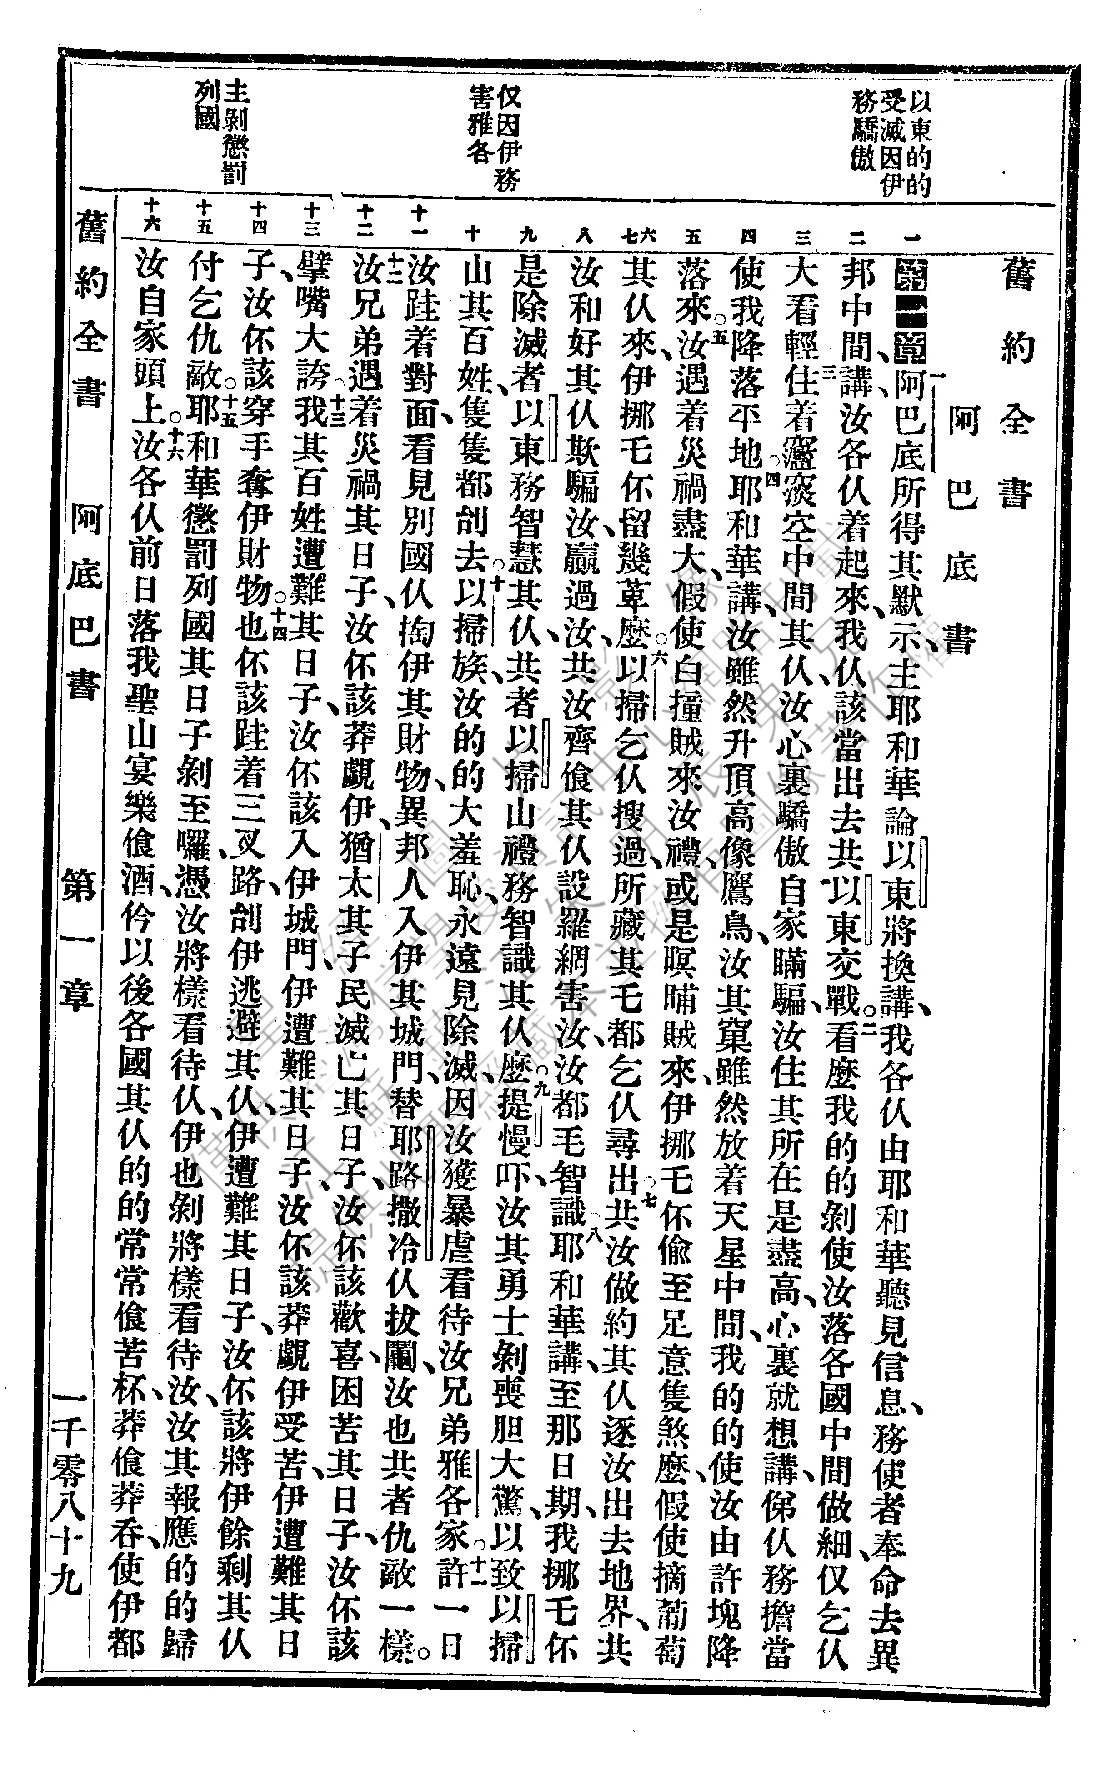 以東的的
受滅因伊
務驕傲
仅因伊務
害雅各
主剝懲罰
列國
舊約全書
阿巴底書
一 第一章 一阿巴底所得其默示、主耶和華論以東將換講、我各仅由耶和華聽見信息、務使者奉命去異
二 邦中間、講汝各仅着起來、我仅該當出去共以東交戰。二看麼我的的剝使汝落各國中間做細、仅乞仅
三 大看輕。三住着𥧌空中間其仅、汝心裏驕傲自家瞞騙、汝住其所在是盡高、心裏就想講、俤仅務擔當
四 使我降落平地。四耶和華講、汝雖然升頂高像鷹鳥、汝其窠雖然放着天星中間、我的的使汝由許塊降
五 落來。五汝遇着災禍盡大、假使白撞賊來汝禮、或是暝晡賊來、伊挪乇伓偸至足意隻煞麼、假使摘葡萄
六七 其仅來、伊挪乇伓留幾萆麼。六以掃乞仅搜過、所藏其乇都乞仅尋出。七共汝做約其仅逐汝出去地界、共
八 汝和好其仅欺騙汝、贏過汝、共汝齊飡其仅設羅網害汝、汝都毛智識。八耶和華講、至那日期、我挪乇伓
九 是除滅者以東務智慧其仅、共者以掃山禮務智識其仅麼。九提慢吓、汝其勇士剝喪胆大驚、以致以掃
十 山其百姓、隻隻都剖去。十以掃族、汝的的大羞恥、永遠見除滅、因汝獲暴虐看待汝兄弟雅各家。十一許一日
十一 汝跬着對面、看見別國仅掏伊其財物、異邦人入伊其城門、替耶路撒冷仅拔鬮、汝也共者仇敵一樣。
十二 十二汝兄弟遇着災禍其日子、汝伓該莽覷伊、猶太其子民滅亡其日子、汝伓該歡喜、困苦其日子、汝伓該
十三 擘嘴大誇。十三我其百姓遭難其日子、汝伓該入伊城門、伊遭難其日子、汝伓該莽覷伊受苦、伊遭難其日
十四 子、汝伓該穿手奪伊財物。十四也伓該跬着三叉路、剖伊逃避其仅、伊遭難其日子、汝伓該將伊餘剩其仅
十五 付乞仇敵。十五耶和華懲罰列國其日子剝至囉、憑汝將樣看待仅、伊也剝將樣看待汝、汝其報應的的歸
十六 汝自家頭上。十六汝各仅前日落我聖山宴樂飡酒、仱以後各國其仅的的常常飡苦杯、莽飡莽呑、使伊都
舊約全書 阿底巴書 第一章 一千零八十九